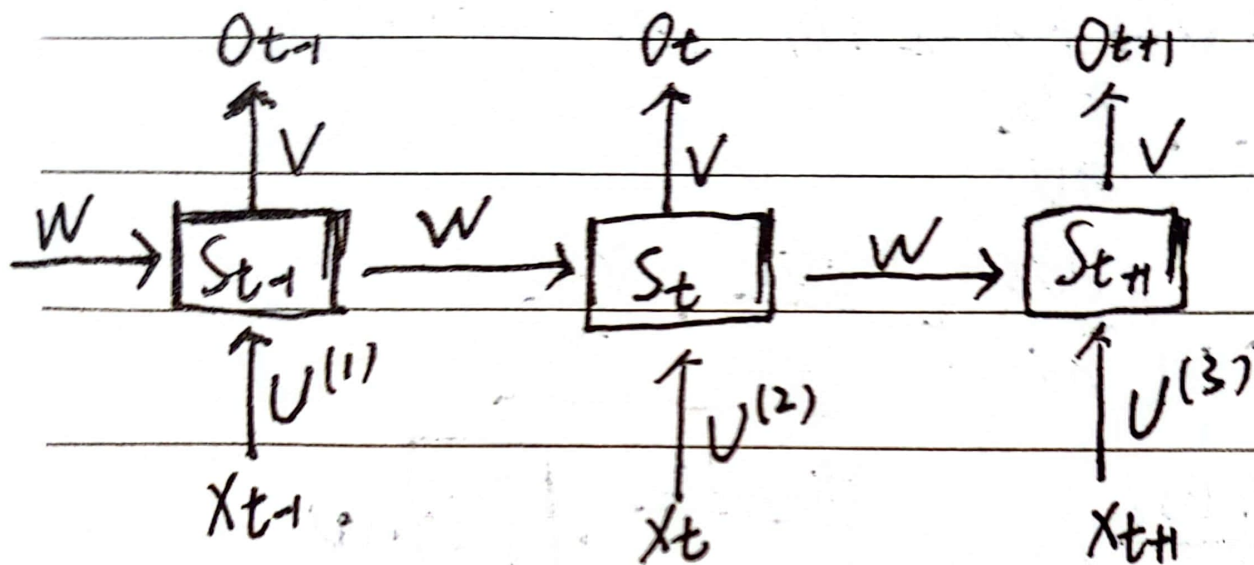 Ot-1 Ot Ot+1
V V V
W W W
St-1 St St+1
U(1) U(2) U(3)
Xt-1 Xt Xt+1